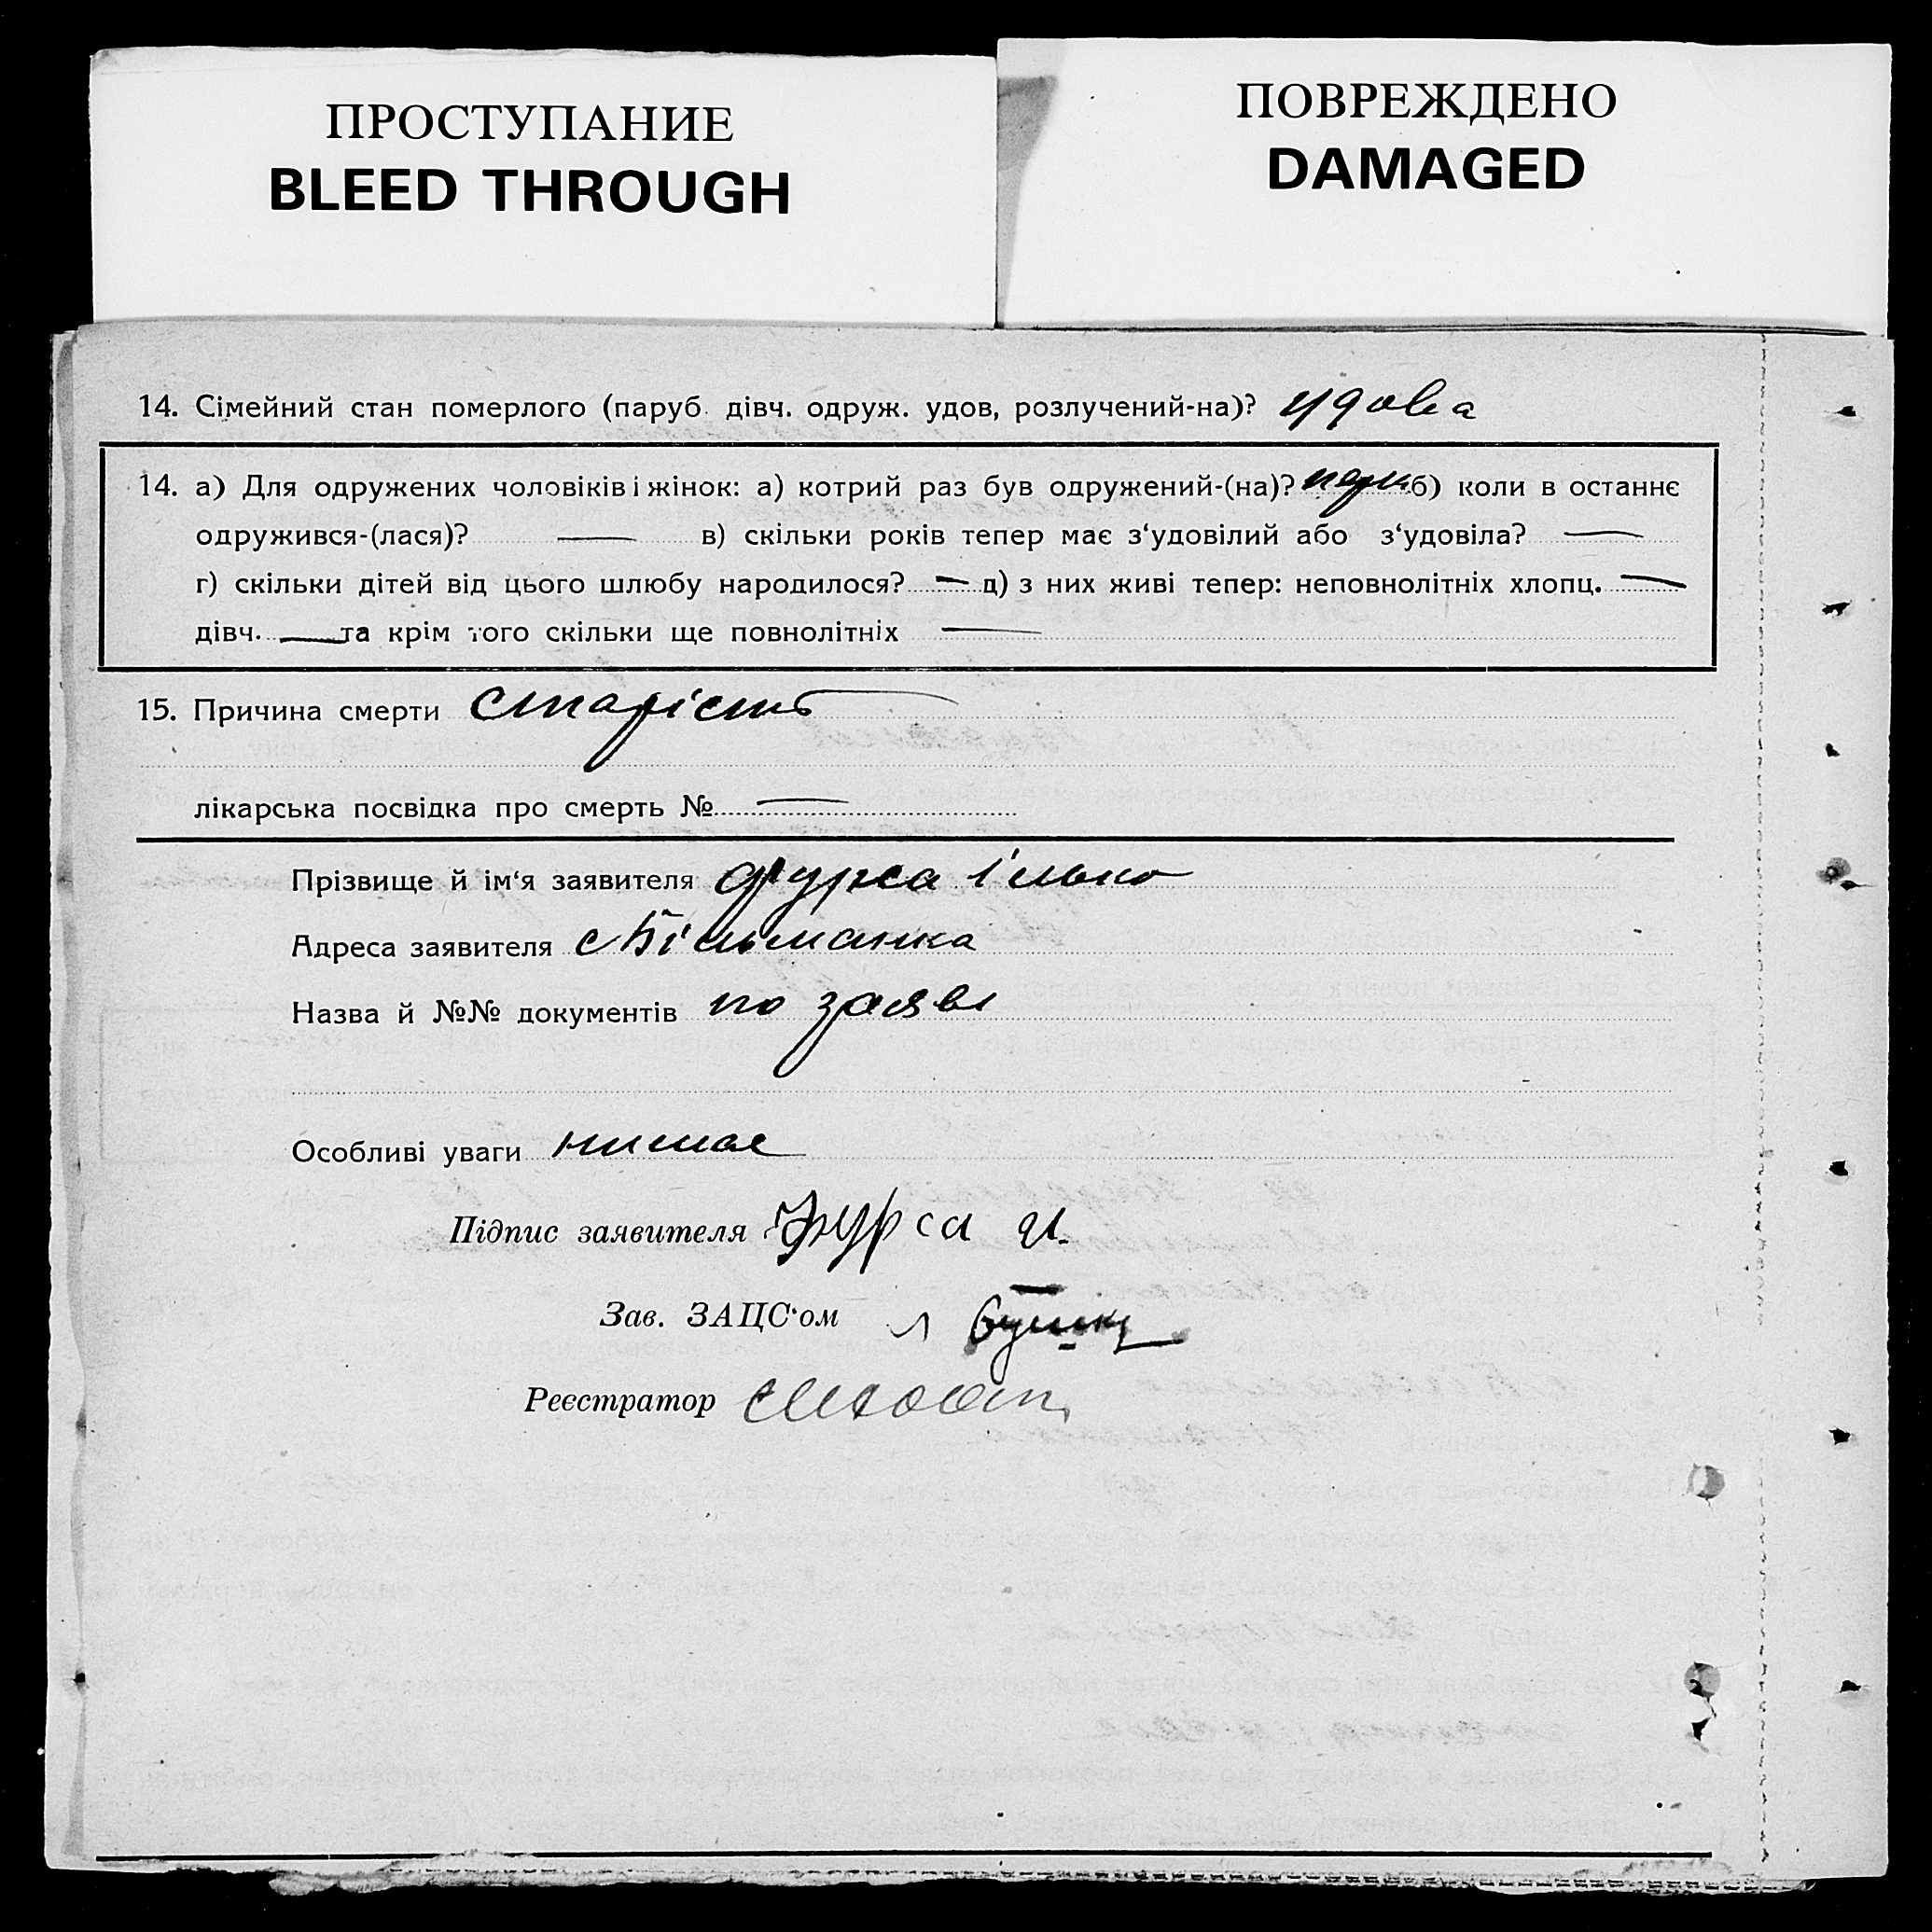 ПРОСТУПАНИЕ
BLEED THROUGH
ПОВРЕЖДЕНО
DAMAGED
14. Сімейний стан померлого (паруб. дівч. одруж. удов, розлучений-на)? удова
14. а) Для одружених чоловіків і жінок: а) котрий раз був одружений-(на)? б) коли в останнє
одружився-(лася)? — в) скільки років тепер має з‘удовілий або з‘удовіла? —
г) скільки дітей від цього шлюбу народилося? — д) з них живі тепер: неповнолітніх хлопц. —
дівч. — та крім того скільки ще повнолітніх —
15. Причина смерти старість
лікарська посвідка про смерть № —
Прізвище й ім‘я заявителя Фурса Ілько
Адреса заявителя с Більманка
Назва й №№ документів по заяві
Особливі уваги нимає
Підпис заявителя Фурса И.
Зав. ЗАЦС‘ом
Реєстратор